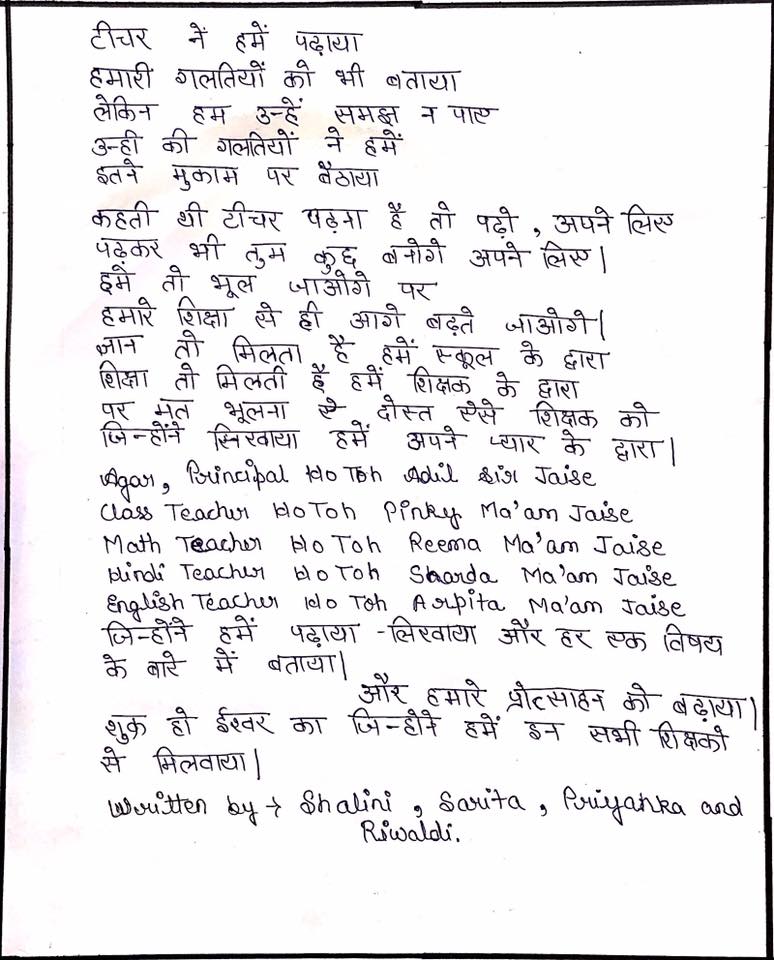 टीचर नें हमें पढ़ाया
हमारी गलतियों को भी बताया
लेकिन हम उन्हें समझ न पाए
उन्ही की गलतियों ने हमें
इतने मुकाम पर बैठाया
कहती थी टीचर पढ़ना है तो पढ़ो , अपने लिए
पढ़कर भी तुम कुछ बनोगे अपने लिए|
हमें तो भूल जाओगे पर
हमारे शिक्षा से ही आगे बढ़ते जाओगे|
ज्ञान तो मिलता है हमें स्कूल के द्वारा
शिक्षा तो मिलती है हमें शिक्षक के द्वारा
पर मत भूलना ऐ दोस्त ऐसे शिक्षक को
जिन्होंने सिखाया हमें अपने प्यार के द्वारा|
Agar, Principal Ho Toh Adil Sir Jaise
Class Teacher Ho Toh Pinky Ma'am Jaise
Math Teacher Ho Toh Reema Ma'am Jaise
Hindi Teacher Ho Toh Sharda Ma'am Jaise
English Teacher Ho Toh Arpita Ma'am Jaise
जिन्होंने हमें पढ़ाया -लिखाया और हर एक विषय
के बारे में बताया|
और हमारे प्रोत्साहन को बढ़ाया|
शुक्र हो ईश्वर का जिन्होने हमें इन सभी शिक्षको
से मिलवाया|
Written by → Shalini , Sarita , Priyanka and
Riwaldi.